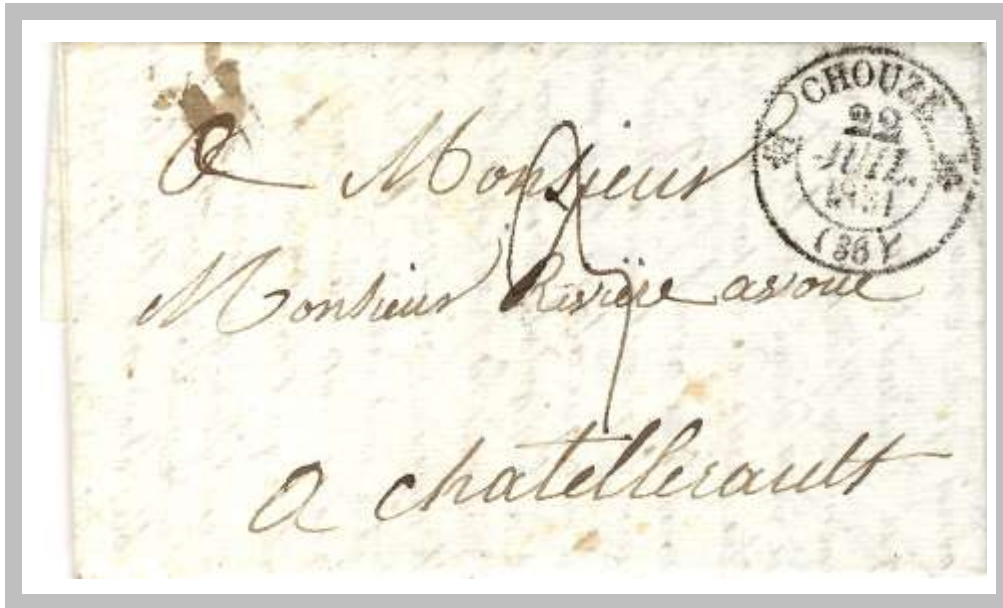 CHOUZE
22
JUIL.
(36)
A Monsieur
Monsieur Rivière avoué
a chatellerault